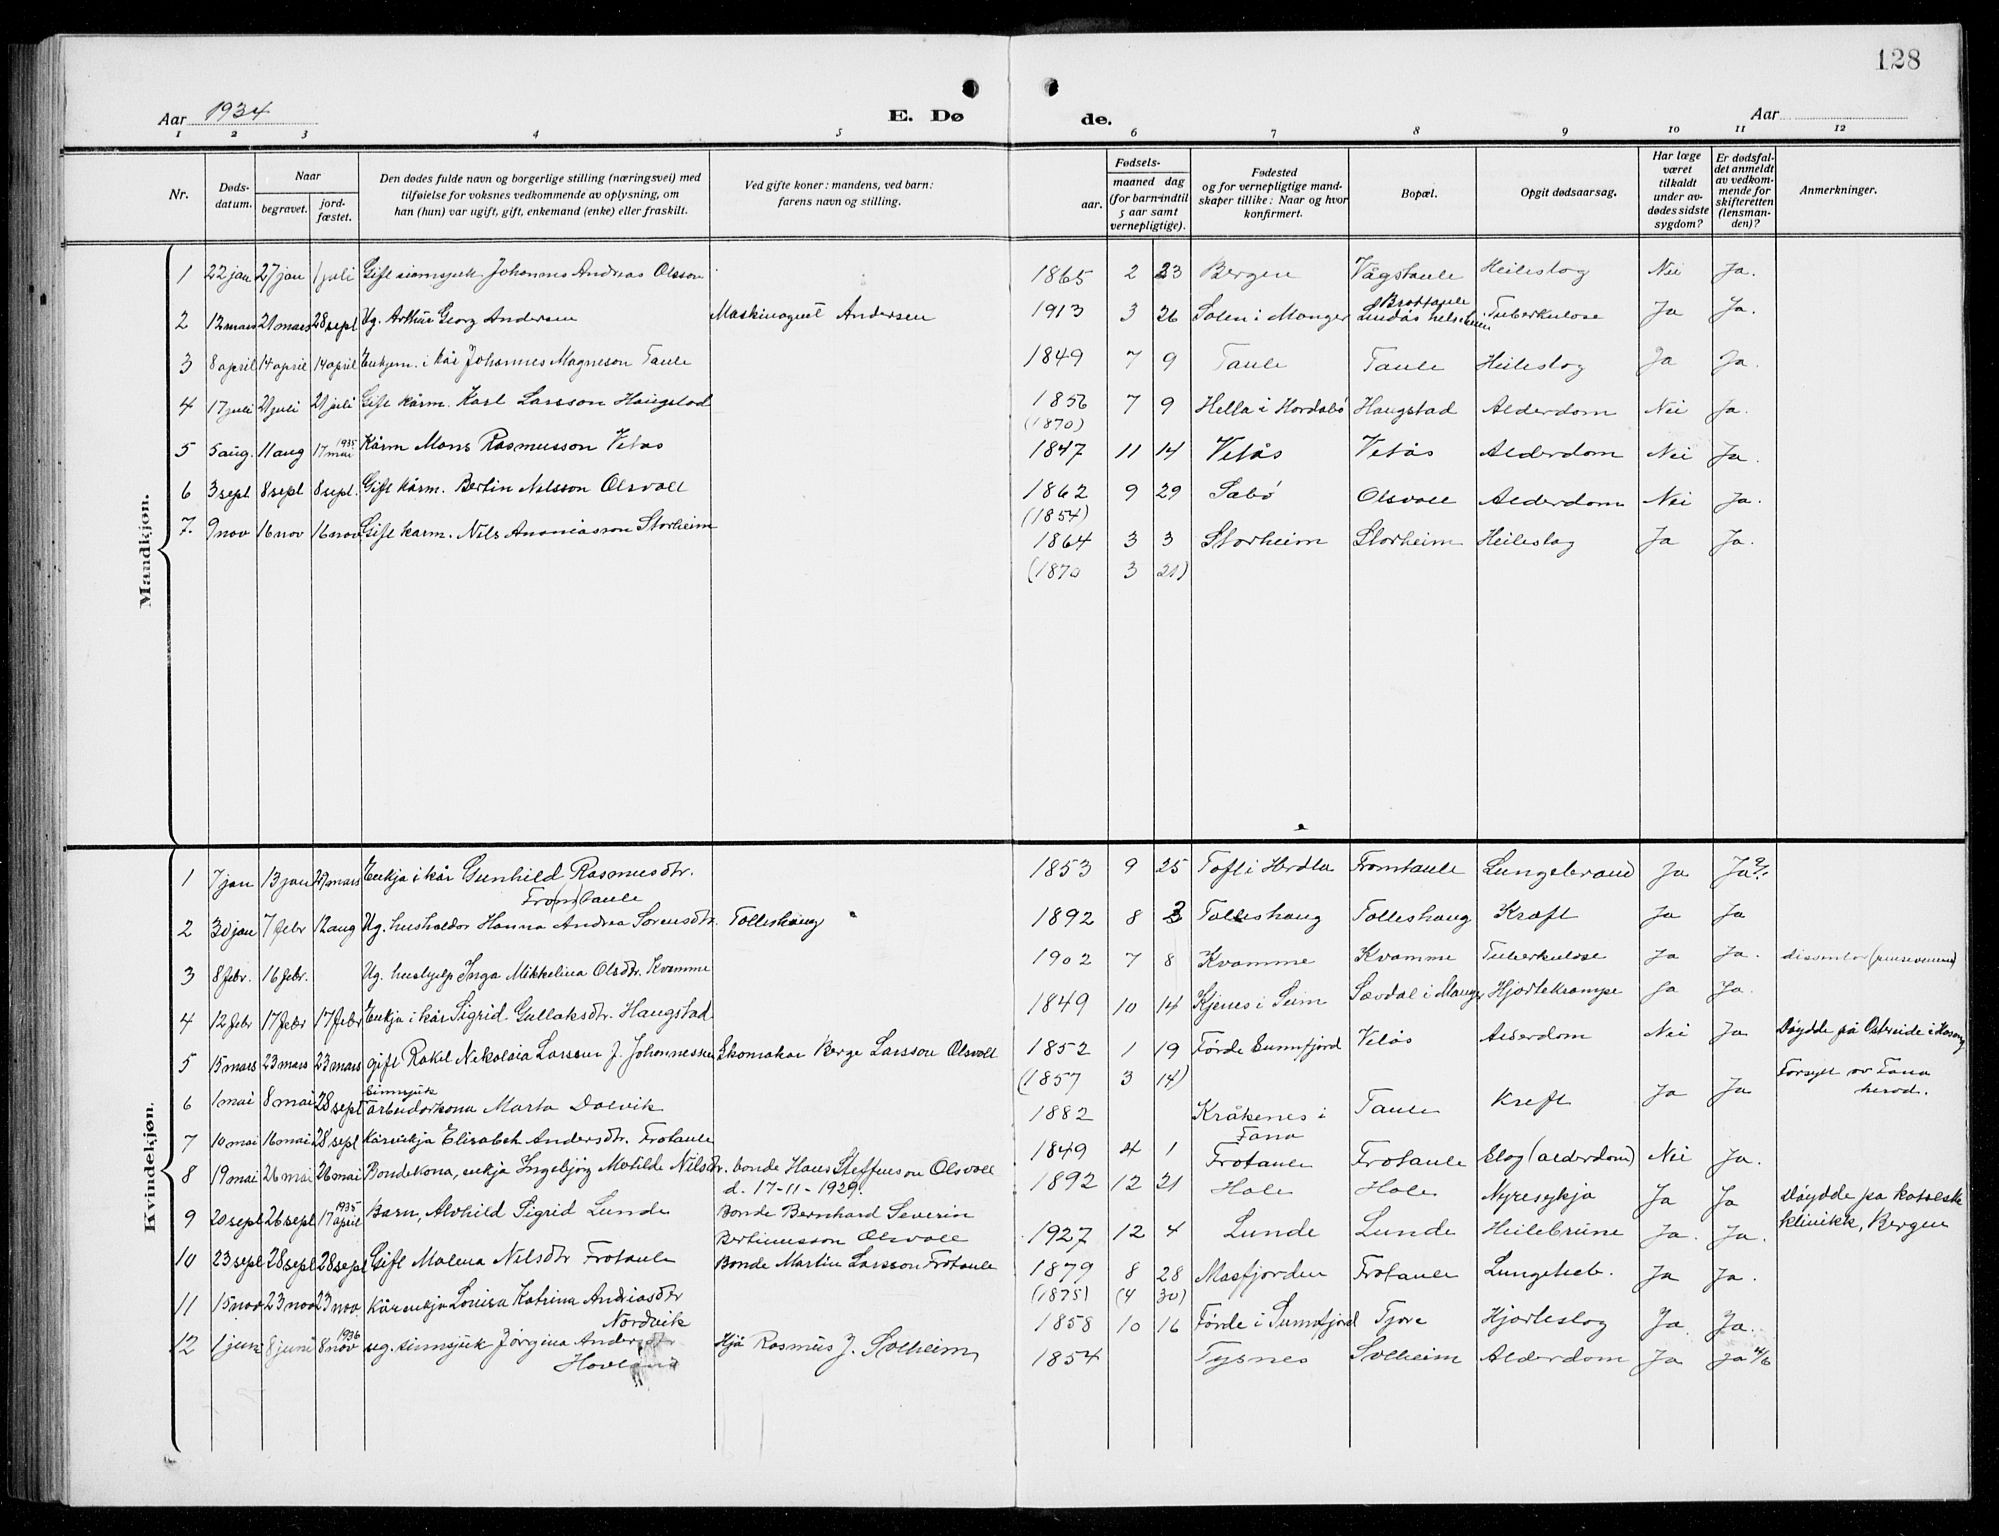 128
Aar 1934
E. Dø
de.
Aar
1 2 3 4 5 6 7 8 9 10 11 12
Nr.
Døds-
datum.
Naar
begravet.
jord-
fæstet.
Den dødes fulde navn og borgerlige stilling (næringsvei) med
tilføielse for voksnes vedkommende av oplysning, om
han (hun) var ugift, gift, enkemand (enke) eller fraskilt.
Ved gifte koner: mandens, ved barn:
farens navn og stilling.
Fødsels-
aar.
maaned dag
(for barn indtil
5 aar samt
vernepligtige).
Fødested
og for vernepligtige mand-
skaper tillike: Naar og hvor
konfirmert.
Bopæl.
Opgit dødsaarsag.
Har læge
været
tilkaldt
under av-
dødes sidste
sygdom?
Er dødsfal-
det anmeldt
av vedkom-
mende for
skifteretten
(lensman-
den)?
Anmerkninger.
Mandkjøn.
1 22 jan 27 jan 1 juli Gift sinnsjuk Johannes Andreas Olsson 1865 2 23 Bergen Vågstaule Heileslag Nei Ja.
2 12 mars 21 mars 28 sept Ug. Arthur Georg Andersen Maskinagent Andersen 1913 3 26 Solen i Manger Brottaule Tuberkulose Ja Ja.
Lindås
3 8 april 14 april 14 april Enkjem. i kår Johannes Magneson Taule 1849 7 9 Taule Taule Heileslag Ja Ja.
4 17 juli 21 juli 21 juli Gift kårm. Karl Larsson Haugstad 1856 7 9 Hella i Hordabø Haugstad Alderdom Nei Ja.
(1870)
5 5 aug. 11 aug 17 mai 1935 Kårm Mons Rasmusson Vetås 1847 11 14 Vetås Vetås Alderdom Nei Ja.
6 3 sept 8 sept 8 sept. Gift kårm. Bertin Nilsson Olsvoll 1862 9 29 Sæbø Olsvoll Alderdom Nei Ja.
(1854)
7. 9 nov 16 nov 16 nov Gift kårm. Nils Ananiasson Storheim 1864 3 3 Storheim Storheim Heileslag Ja Ja.
(1870 3 21)
Kvindekjøn.
1 7 jan 13 jan 27 mars Enkja i kår Gunhild Rasmusdtr. 1853 9 25 Toft i Herdla Fromtaule Lungebrand Ja Ja
Fro(m)taule
2 30 jan 7 febr 12 aug Ug. husholdor Hanna Andrea Sørensdtr. Tolleshaug 1892 8 3 Tolleshaug Tolleshaug Kræft Ja Ja
3 8 febr. 16 febr. Ug. hushjelp Inga Mikkelina Olsdtr. Kvamme 1902 7 8 Kvamme Kvamme Tuberkulose Ja Ja. dissentar
4 12 febr 17 febr 17 febr Enkja i kår Sigrid Gullaksdtr. Haugstad 1849 10 14 Kjenes i Seim Sævdal i Manger Hjartekrampe Ja Ja.
5 15 mars 23 mars 23 mars gift Rakel Nikolaia Larsson f. Johannessen Skomakar Børge Larsson Olsvoll 1852 1 19 Førde Sunnfjord Vetås Alderdom Nei Ja Døydde på Ostreide i
(1857 3 14)
6 1 mai 8 mai 28 sept Sinnsjuk 1882 Kråkenes i Taule Kreft Ja Ja Forsytt av Fana
arbeidarkona Marta Dalvik Fana herad.
7 10 mai 16 mai 28 sept Kårenkja Elisabeth Andersdtr. Frotaule 1849 4 1 Frotaule Frotaule Slag (alderdom) Nei Ja.
8 19 mai 26 mai 26 mai Bondekona, enkja Ingebjørg Matilde Nilsdtr. bonde Hans Steffenson Olsvoll 1892 12 21 Hole Hole Nyresykja Ja Ja Døydde på katolske
d. 17-11-1929. klinikk, Bergen
9 20 sept 26 sept 17 april 1935 Barn, Alvhild Sigrid Lunde Bonde Bernhard Severin 1927 12 4 Lunde Lunde Heilebrune Ja. Ja.
Bertinusson Olsvoll
10 23 sept 28 sept 28 sept Gift Malena Nilsdtr Frotaule Bonde Martin Larsson Frotaule 1879 8 28 Masfjorden Frotaule Lungebet. Ja Ja.
(1875) (4 30)
11 15 nov 23 nov 23 nov. Kårenkja Lovisa Katrina Andriasdtr 1858 10 16 Førde i Sunnfjord Tjore Hjarteslag Ja. Ja.
Nordvik
12 1 juni 8 juni 8 nov 1936 ug. sinnsjuk Jørgina Andersdtr Hjå Rasmus J. Solheim 1854 Tysnes Solheim Alderdom Ja Ja 4/6
Hovland